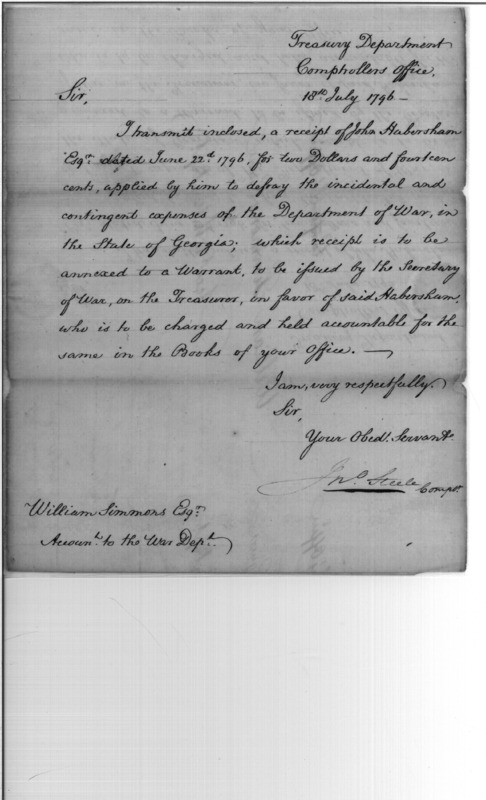 Treasury Department
Comptrollers Office,
18th July 1796 –
Sir,
I transmit inclosed, a receipt of John Habersham
Esqr. dated June 22d 1796, for two Dollars and fourteen
cents, applied by him to defray the incidental and
contingent expenses of the Department of War, in
the State of Georgia; which receipt is to be
annexed to a Warrant, to be issued by the Secretary
of War, on the Treasuror, in favor of said Habersham,
who is to be charged and held accountable for the
same in the Books of your Office. —
I am, very respectfully.
Sir,
Your Obedt. Servant.
Jno. Steele Compr.
William Simmons Esqr.
Account. to the War Dept.